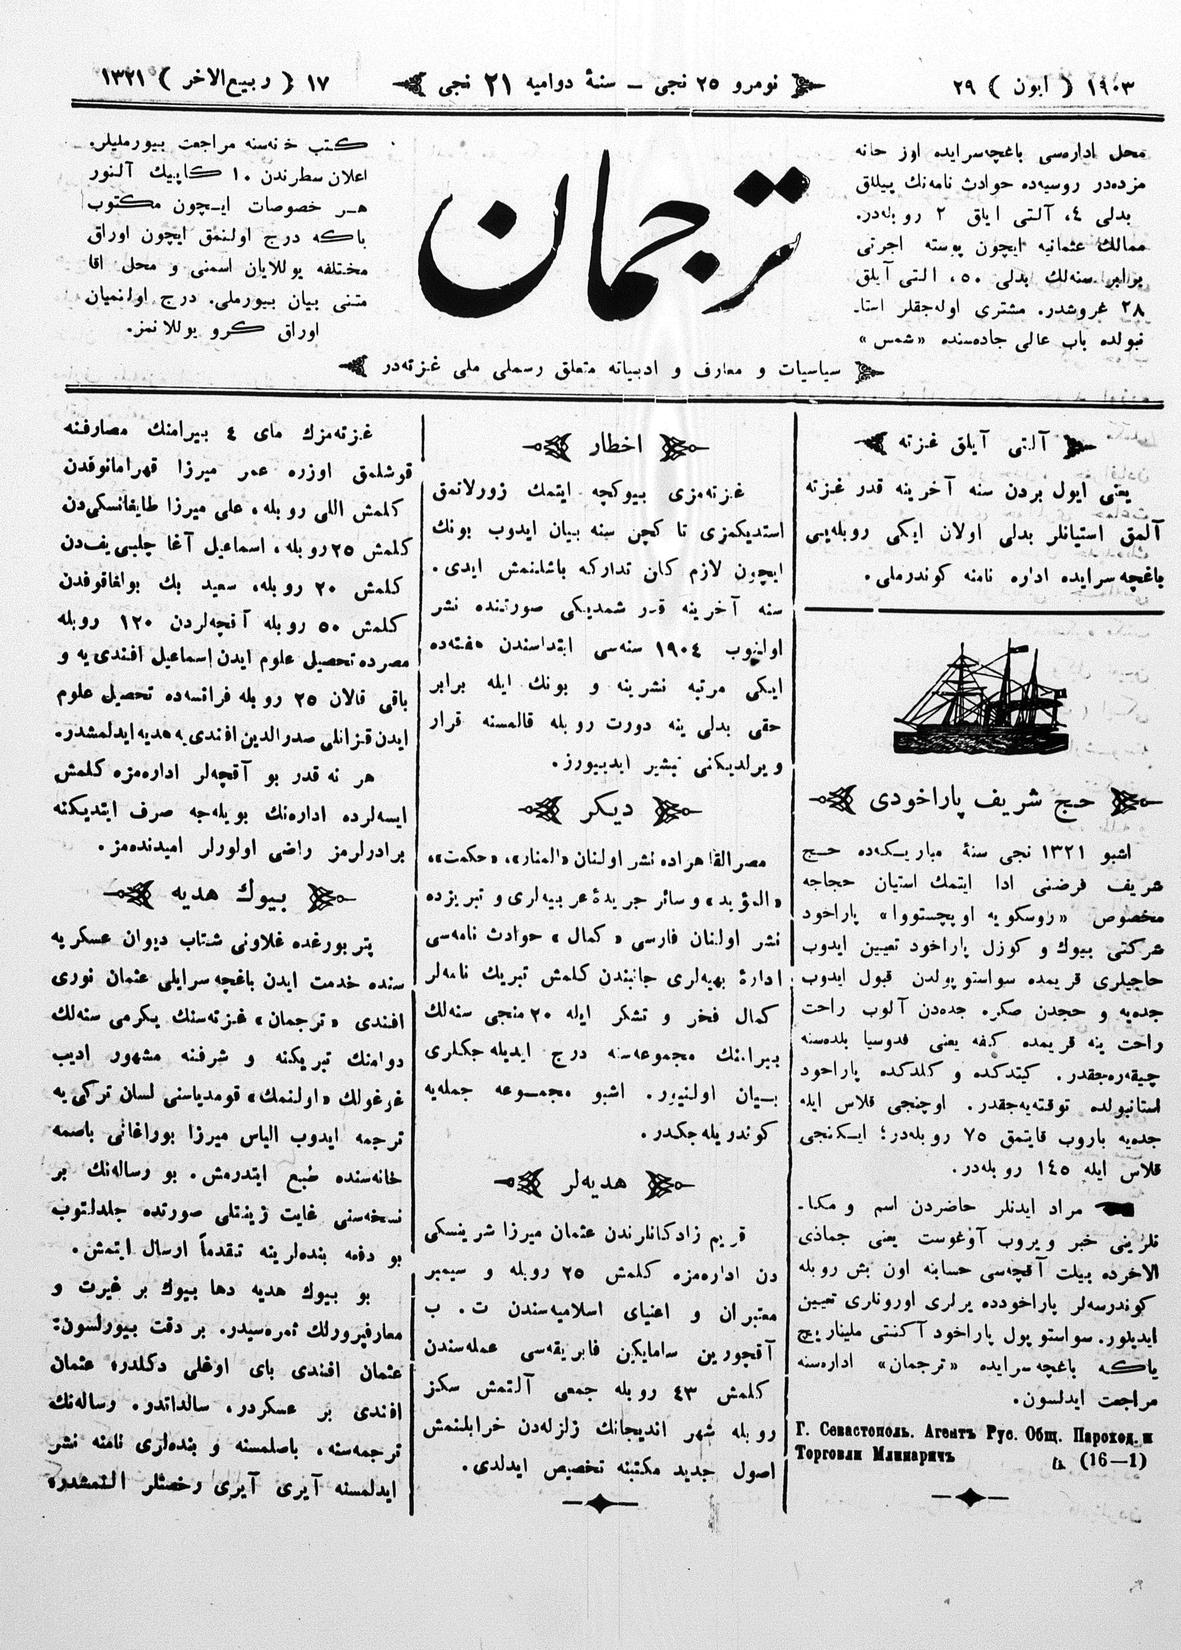 ١٩٠٣ ( ايون ) ٢٩
نومرو ٢٥ نجى — سنهٔ دواميه ٢١ نجى
١٧ ( ربيع الاخر ) ١٣٢١
محل اداره‌سى باغچه‌سرايده اوز خانه
مزده‌در روسيه‌ده حوادث نامه‌نك ييللق
بدلى ٤، آلتى ايلق ٢ روبله‌در.
ممالك عثمانيه ايچون پوسته اجرتى
برابر سنه‌لك بدلى ٥٠، التى آيلق
٢٨ غروشدر. مشترى اوله‌جقلر استا-
نبولده باب عالى جاده‌سنده «شمس»
ترجمان
كتب خانه‌سنه مراجعت بيورمليلر.
اعلان سطرندن ١٠ كاپيك آلنور
هر خصوصات ايچون مكتوب
باكه درج اولنمق ايچون اوراق
مختلفه يوللايان اسمنى و محل اقا
متنى بيان بيورملى. درج اولنميان
اوراق كرو يوللانمز.
سياسيات و معارف و ادبياته متعلق رسملى ملى غزته‌در
آلتى آيلق غزته
يعنى ايول بردن سنه آخرينه قدر غزته
آلمق استيانلر بدلى اولان ايكى روبله‌يى
باغچه‌سرايده اداره نامنه كوندرملى.
حج شريف پاراخودى
اشبو ١٣٢١ نجى سنهٔ مباركه‌ده حج
شريف فرضنى ادا ايتمك استيان حجاجه
مخصوص «روسكويه اوپچستووا» پاراخود
شركتى بيوك و كوزل پاراخود تعيين ايدوب
حاجيلرى قريمده سواستوپولدن قبول ايدوب
جده‌يه و حجدن صكره جده‌دن آلوب راحت
راحت ينه قريمده كفه يعنى فدوسيا بلده‌سنه
چيقه‌ره‌جقدر. كيتدكده و كلدكده پاراخود
استانبولده توقته‌يه‌جقدر. اوچنجى قلاس ايله
جده‌يه باروب قايتمق ٧٥ روبله‌در؛ ايكنجى
قلاس ايله ١٤٥ روبله‌در.
مراد ايدنلر حاضردن اسم و مكا-
نلرينى خبر ويروب آوغوست يعنى جماذى
الاخرده بيلت آقچه‌سى حسابنه اون بش روبله
كوندرسه‌لر پاراخودده يرلرى اورونلرى تعيين
ايديلور. سواستوپول پاراخود آكنتى ملينارييچ
ياكه باغچه‌سرايده «ترجمان» اداره‌سنه
مراجعت ايدلسون.
Г. Севастополь. Агентъ Рус. Общ. Пароход. и
Торговли Млинаричъ (16—1)
اخطار
غزته‌مزى بيوكچه ايتمك زورلانمق
استديكمزى تا كچن سنه بيان ايدوب بونك
ايچون لازم كان تداركه باشلنمش ايدى.
سنه آخرينه قدر شمديكى صورتنده نشر
اولنوب ١٩٠٤ سنه‌سى ابتداسندن هفته‌ده
ايكى مرتبه نشرينه و بونك ايله برابر
حقى بدلى ينه دورت روبله قالمسنه قرار
ويرلديكنى تبشير ايدييورز.
ديكر
مصر القاهراده نشر اولنان «المنار»، «حكمت»،
«المؤيد» و سائر جريدهٔ عربيه‌لرى و تبريزده
نشر اولنان فارسى «كمال» حوادث نامه‌سى
ادارهٔ بهيه‌لرى جانبندن كلمش تبريك نامه‌لر
كمال فخر و تشكر ايله ٢٠ منجى سنه‌لك
بيرامنك مجموعه‌سنه درج ايديله‌جكلرى
بيان اولنيور. اشبو مجموعه جمله‌يه
كوندريله‌جكدر.
هديه‌لر
قريم زادكانلرندن عثمان ميرزا شرينسكى
دن اداره‌مزه كلمش ٢٥ روبله و سيمبر
معتبران و اغنياى اسلاميه‌سندن ت. ب
آقچورين سامايكين فابريقه‌سى عمله‌سندن
كلمش ٤٣ روبله جمعى آلتمش سكز
روبله شهر انديجانك زلزله‌دن خرابلنمش
اصول جديد مكتبنه تخصيص ايدلدى.
غزته‌مزك ماى ٤ بيرامنك مصارفنه
قوشلمق اوزره عمر ميرزا قهرامانوفدن
كلمش اللى روبله، على ميرزا طايغانسكى‌دن
كلمش ٢٥ روبله، اسماعيل آغا چلبى‌يف‌دن
كلمش ٢٠ روبله، سعيد بك بولغاقوفدن
كلمش ٥٠ روبله آقچه‌لردن ١٢٠ روبله
مصرده تحصيل علوم ايدن اسماعيل افندى‌يه و
باقى قالان ٢٥ روبله فرانسه‌ده تحصيل علوم
ايدن قزانلى صدرالدين افندى‌يه هديه ايدلمشدر.
هر نه قدر بو آقچه‌لر اداره‌مزه كلمش
ايسه‌لرده اداره‌نك بويله‌جه صرف ايتديكنه
برادرلرمز راضى اولورلر اميدنده‌مز.
بيوك هديه
پتربورغده غلاونى شتاب ديوان عسكريه
سنده خدمت ايدن باغچه‌سرايلى عثمان نورى
افندى «ترجمان» غزته‌سنك يكرمى سنه‌لك
دوامنك تبريكنه و شرفنه مشهور اديب
غوغولك «اولنمك» قومدياسنى لسان تركى‌يه
ترجمه ايدوب الياس ميرزا بوراغانى باصمه
خانه‌سنده طبع ايتدرمش. بو رساله‌نك بر
نسخه‌سنى غايت زينتلى صورتده جلدلتوب
بو دفعه بنده‌لرينه تقدماً ارسال ايتمش.
بو بيوك هديه دها بيوك بر غيرت و
معارفپرورلك ثمره‌سيدر. بر دقت بيورلسون:
عثمان افندى باى اوغلى دكلدر، عثمان
افندى بر عسكردر، سالداتدر. رساله‌نك
ترجمه‌سنه، باصلمسنه و بنده‌لرى نامنه نشر
ايدلمسنه آيرى آيرى رخصتلر التمشدر،